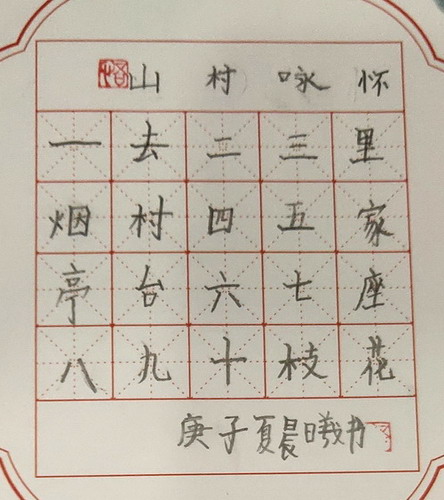 山村咏怀
一去二三里
烟村四五家
亭台六七座
八九十枝花
庚子夏晨曦书